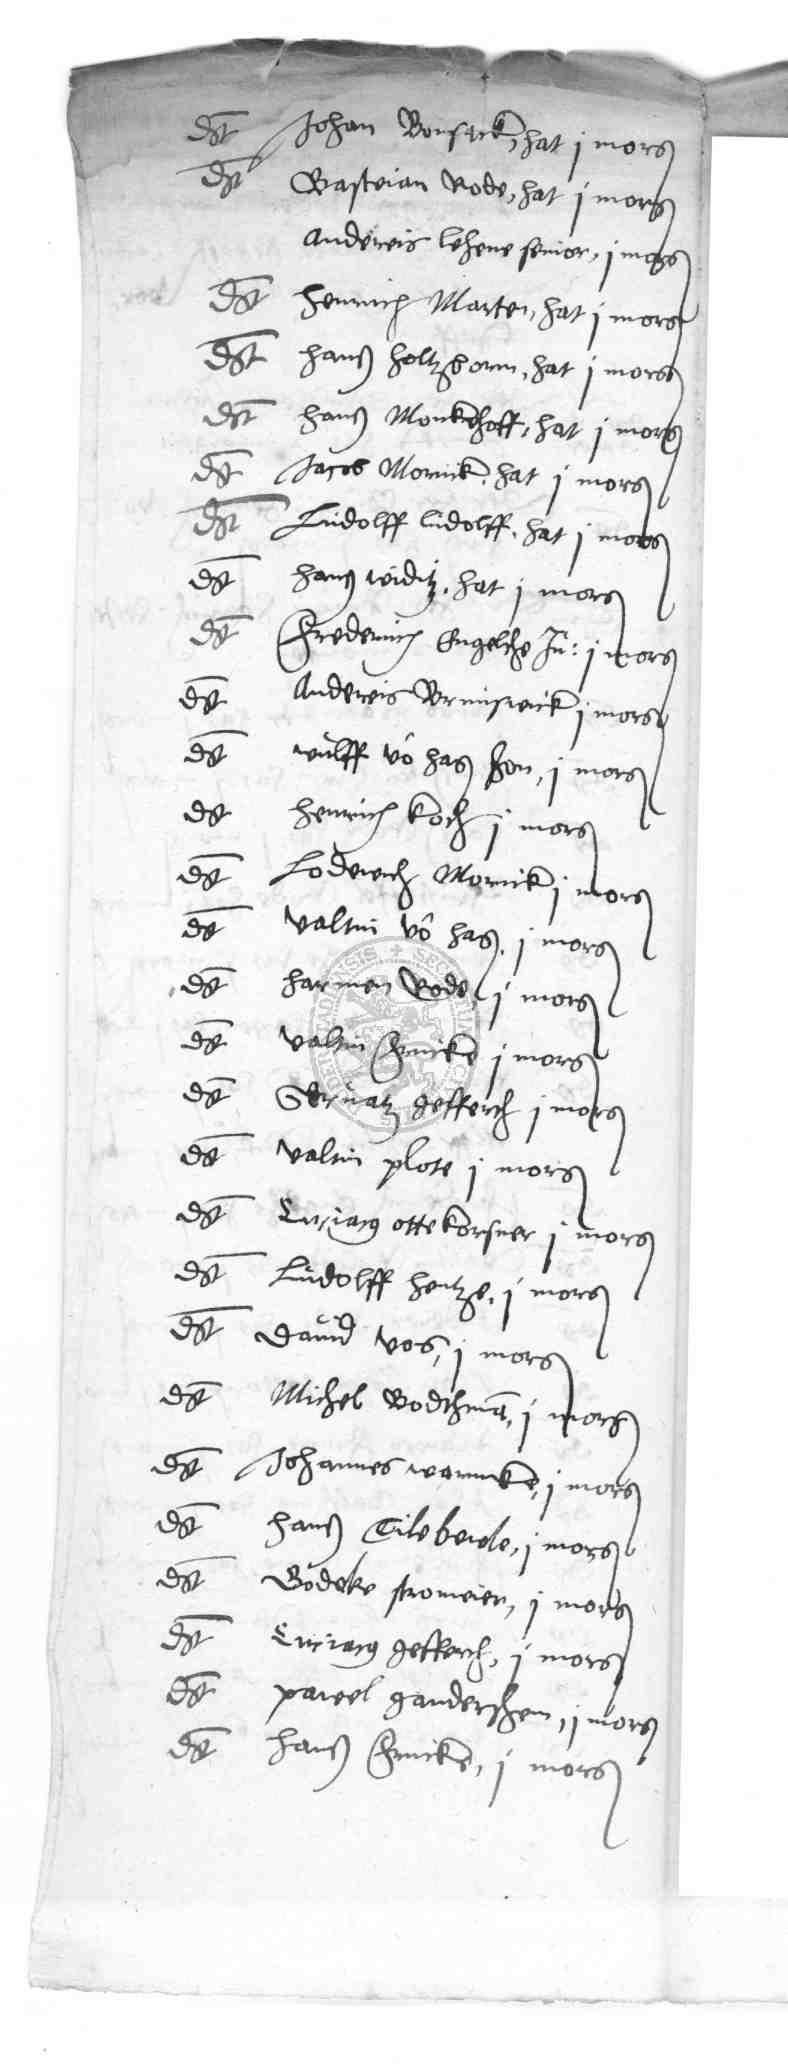 dt Johan Bonsack, hat j morg
dt Bastian Rode, hat j morg
Andereis lehene senior, j morg
dt Henrich Marten, hat j morg
dt Hans Holtzborn, hat j morg
dt Hans Monkehoff, hat j morg
dt Jacob Mornick, hat j morg
dt Ludolff ludolff, hat j morg
dt Hans widitz, hat j morg
dt Frederich Engelche Ju: j morg
dt Andereis Brunswick j morg
dt wulff vo hag j morg
dt Henrich Koch j morg
dt Lodewich Mornick j morg
dt Valtin vo hag, j morg
dt Harmen Rode, j morg
dt Valtin Fricke j morg
dt Servatz gefferch j morg
dt Valtin plote j morg
dt Ciriacg ottekorsner j morg
dt Ludolff Hentze, j morg
dt David Vos, j morg
dt Michel Bodthma, j morg
dt Johannes warnke, j morg
dt Hans Tilebeile, j morg
dt Bodeke stromeier, j morg
dt Ciriacg gefferch, j morg
dt pawel ganderschem, j morg
dt Hans Fricke, j morg